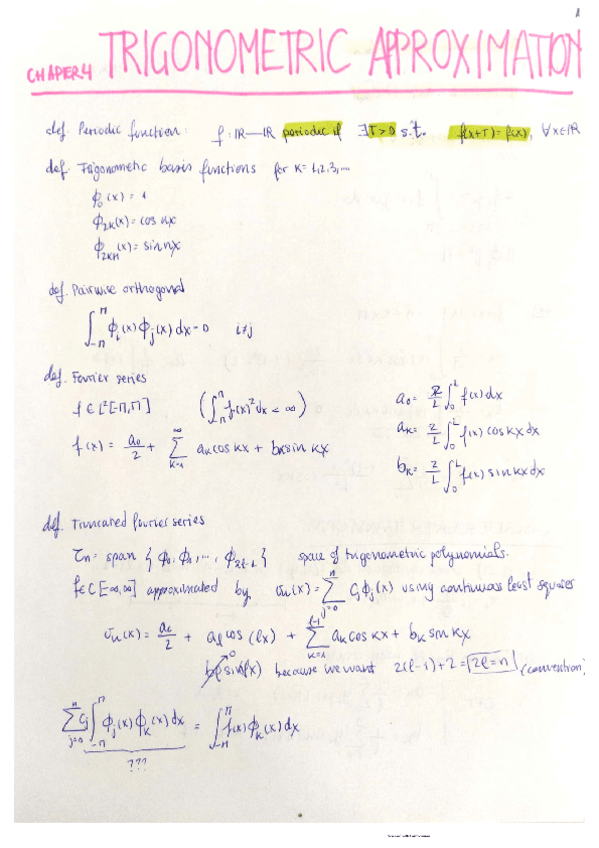 1
CHAPER 4 TRIGONOMETRIC APPROXIMATION
def. Periodic function: f: IR—IR periodic if ∃T>0 s.t. f(x+T)=f(x), ∀x∈IR
def. Trigonometric basis functions for k=1,2,3,...
ϕ₀(x) = 1
ϕ₂ₖ(x) = cos nx
ϕ₂ₖ₊₁(x) = sin nx
def. Pairwise orthogonal
∫_{-π}^{π} ϕᵢ(x) ϕⱼ(x) dx = 0 i≠j
def. Fourier series
f ∈ L²[-π,π] (∫_{-π}^{π} f(x)² dx < ∞)
a₀ = 2/L ∫_0^L f(x) dx
aₖ = 2/L ∫_0^L f(x) cos kx dx
f(x) = a₀/2 + Σ_{k=1}^{∞} aₖ cos kx + bₖ sin kx
bₖ = 2/L ∫_0^L f(x) sin kx dx
def. Truncated fourier series
τₙ = span { ϕ₀, ϕ₁, ..., ϕ_{2ℓ-1} } space of trigonometric polynomials.
f∈C[-∞,∞] approximated by σₙ(x) = Σ_{j=0}^{n} Cⱼϕⱼ(x) using continuous least squares
σₙ(x) = a₀/2 + a_ℓ cos(ℓx) + Σ_{k=1}^{ℓ-1} aₖ cos kx + bₖ sin kx
b_ℓ sin(ℓx) 0 because we want 2(ℓ-1)+2 = 2ℓ=n (convention)
Σ_{j=0}^{n} Cⱼ ∫_{-π}^{π} ϕⱼ(x) ϕₖ(x) dx = ∫_{-π}^{π} f(x) ϕₖ(x) dx
???